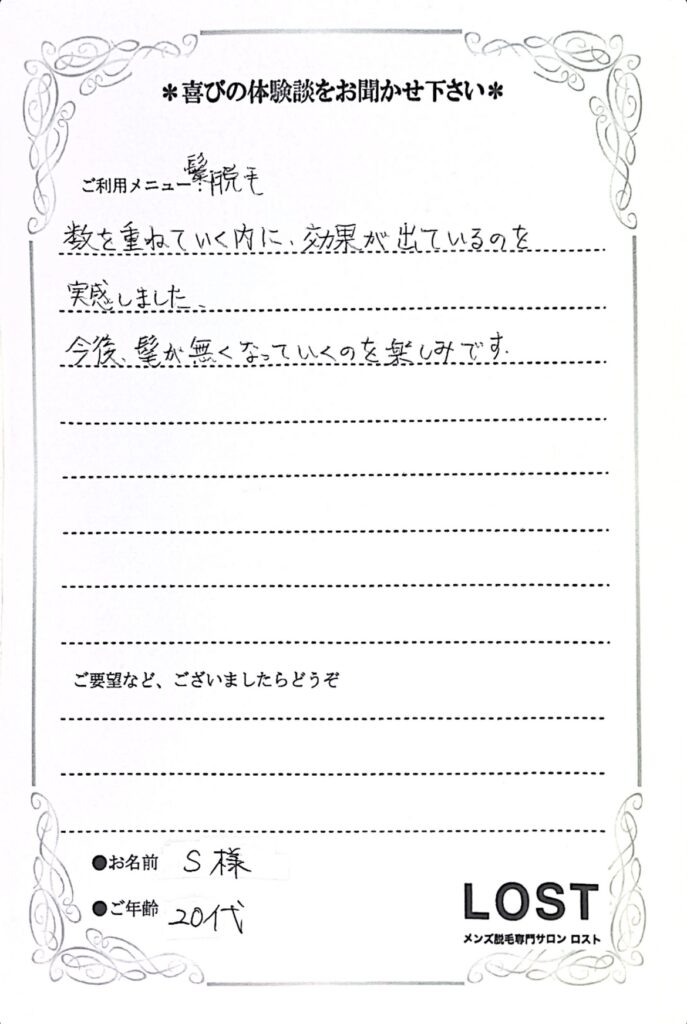 ＊喜びの体験談をお聞かせ下さい＊
ご利用メニュー：髭脱毛
数を重ねていく内に、効果が出ているのを
実感しました、
今後、髭が無くなっていくのを楽しみです.
ご要望など、ございましたらどうぞ
●お名前 S様
●ご年齢 20代
LOST
メンズ脱毛専門サロン ロスト